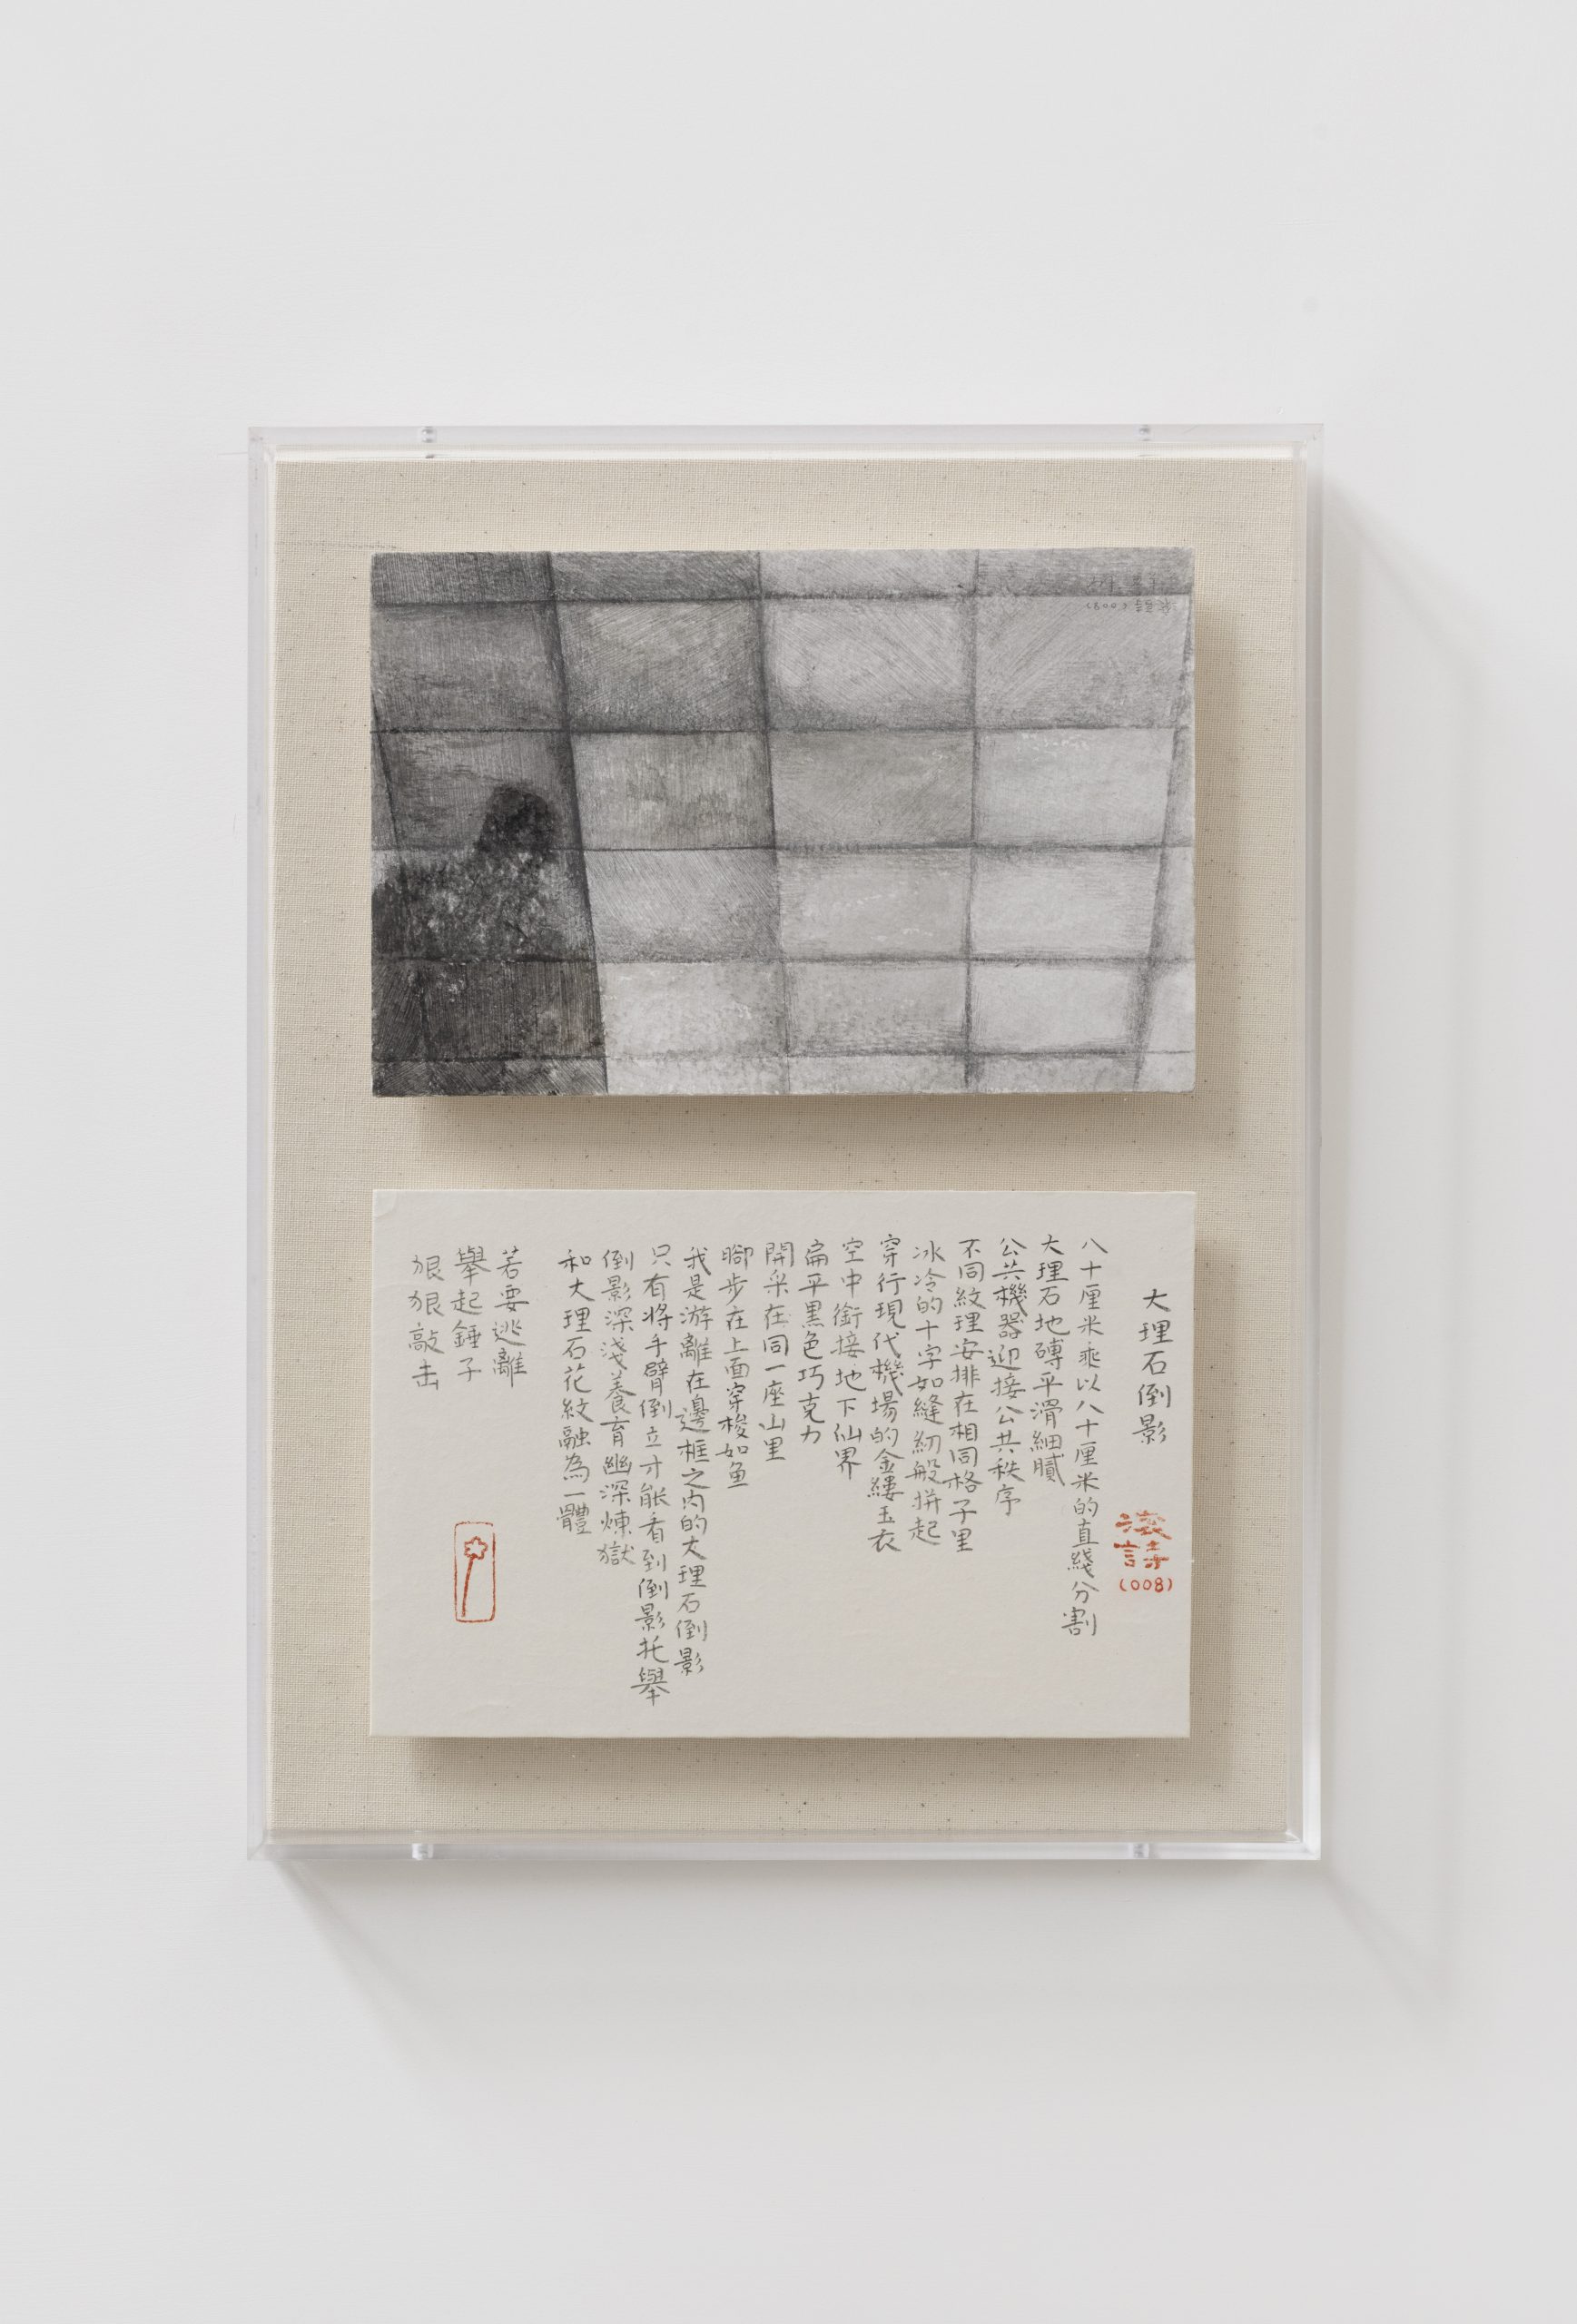 大理石倒影
滚詩
(008)
八十厘米乘以八十厘米的直綫分割
大理石地磚平滑細膩
公共機器迎接公共秩序
不同紋理安排在相同格子里
冰冷的十字如縫紉般拼起
穿行現代機場的金縷玉衣
空中銜接地下仙界
扁平黑色巧克力
開采在同一座山里
腳步在上面穿梭如鱼
我是游離在邊框之内的大理石倒影
只有將手臂倒立才能看到倒影托舉
倒影深淺養育幽深煉獄
和大理石花紋融為一體
若要逃離
舉起錘子
狠狠敲击